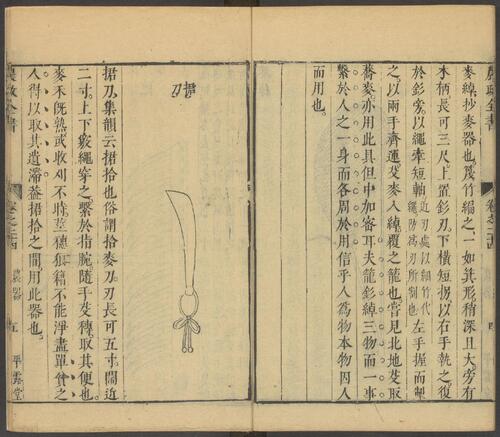 農政全書
卷之二十四
四
麥綽抄麥器也篾竹編之一如箕形稍深且大旁有
木柄長可三尺上置釤刃下橫短拐以右手執之復
於釤旁以繩牽短軸近刃處以細竹代繩防為刃所割也左手握而掣
之以兩手齊運芟麥入綽覆之籠也嘗見北地芟取
蕎麥亦用此具但中加密耳夫籠釤綽三物而一事
繫於人之一身而各周於用信乎人為物本物因人
而用也
捃刀
捃刀集韻云捃拾也俗謂拾麥刀刀長可五寸闊近
二寸上下竅繩穿之繫於指腕隨手芟穗取其便也
麥禾既熟或收刈不時莖穗狼籍不能淨盡單貧之
人得以取其遺滯蓋捃拾之間用此器也
農政全書
卷之二十四
農器
五
平露堂